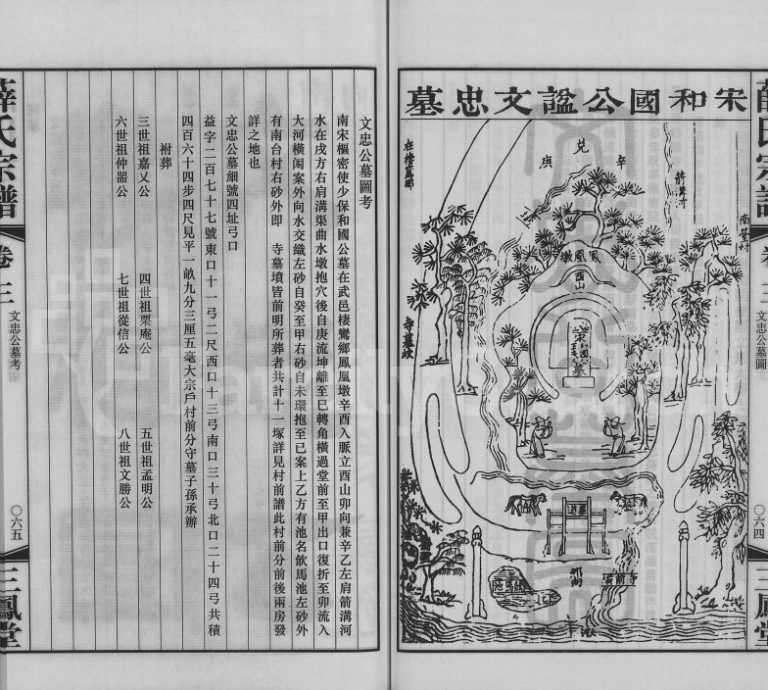 薛氏宗譜
卷三
文忠公墓圖
〇六四
三鳳堂
宋和國公諡文忠墓
辛
兌
庚
鳳凰墩
酉山
寺墓墳
卯向
文忠公墓圖考
南宋樞密使少保和國公墓在武邑棲鸞鄉鳳凰墩辛酉入脈立酉山卯向兼辛乙左肩箭溝河
水在戌方右肩溝渠曲水墩抱穴後自庚流坤離至巳轉角橫過堂前至甲出口復折至卯流入
大河橫闌案外向水交織左砂自癸至甲右砂自未環抱至巳案上乙方有池名飲馬池左砂外
有南台村右砂外即 寺墓墳皆前明所葬者共計十一塚詳見村前譜此村前分前後兩房發
詳之地也
文忠公墓細號四址弓口
益字二百七十七號東口十一弓二尺西口十三弓南口三十弓北口二十四弓共積
四百六十四步四尺見平一畝九分三厘五毫大宗戶村前分守墓子孫承辦
祔葬
三世祖嘉乂公 四世祖栗庵公 五世祖孟明公
六世祖仲器公 七世祖從信公 八世祖文勝公
薛氏宗譜
卷三
文忠公墓考
〇六五
三鳳堂